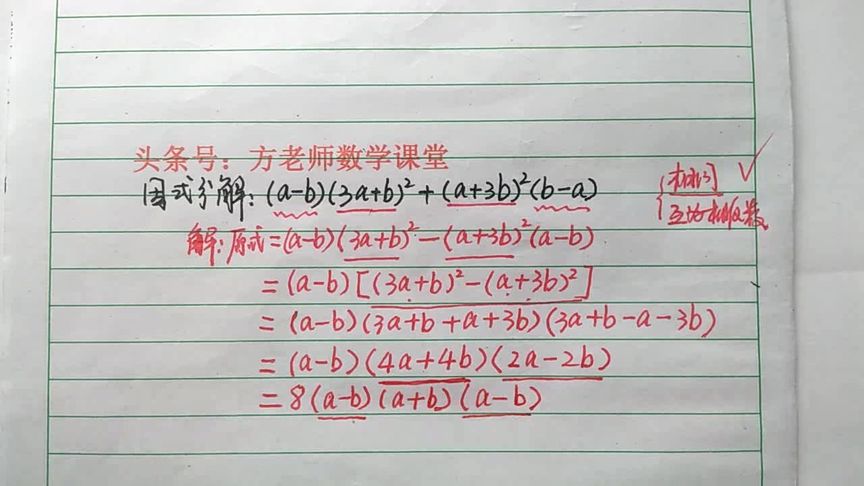 头条号：方老师数学课堂
因式分解：(a-b)(3a+b)²+(a+3b)²(b-a)
{相同 ✓
互为相反数
解：原式=(a-b)(3a+b)²-(a+3b)²(a-b)
=(a-b)[(3a+b)²-(a+3b)²]
=(a-b)(3a+b+a+3b)(3a+b-a-3b)
=(a-b)(4a+4b)(2a-2b)
=8(a-b)(a+b)(a-b)